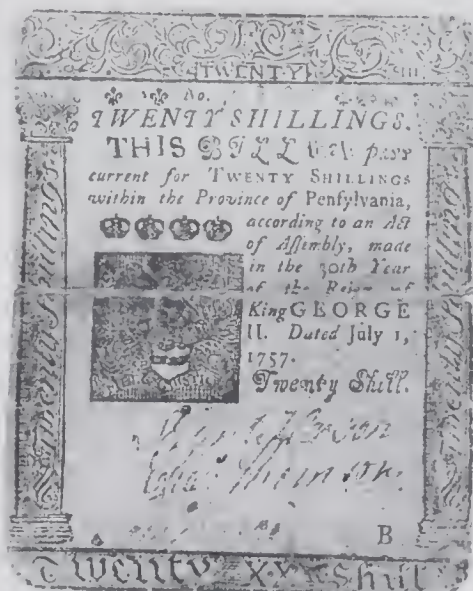 TWENTY
No.
TWENTY SHILLINGS.
THIS BILL shall pass
current for TWENTY SHILLINGS
within the Province of Penſylvania,
according to an Act
of Aſſembly, made
in the 30th Year
of the Reign of
King GEORGE
II. Dated July 1,
1757.
Twenty Shill.
Thomson
B
Twenty XX Shill
Twenty Shillings
Twenty Shillings